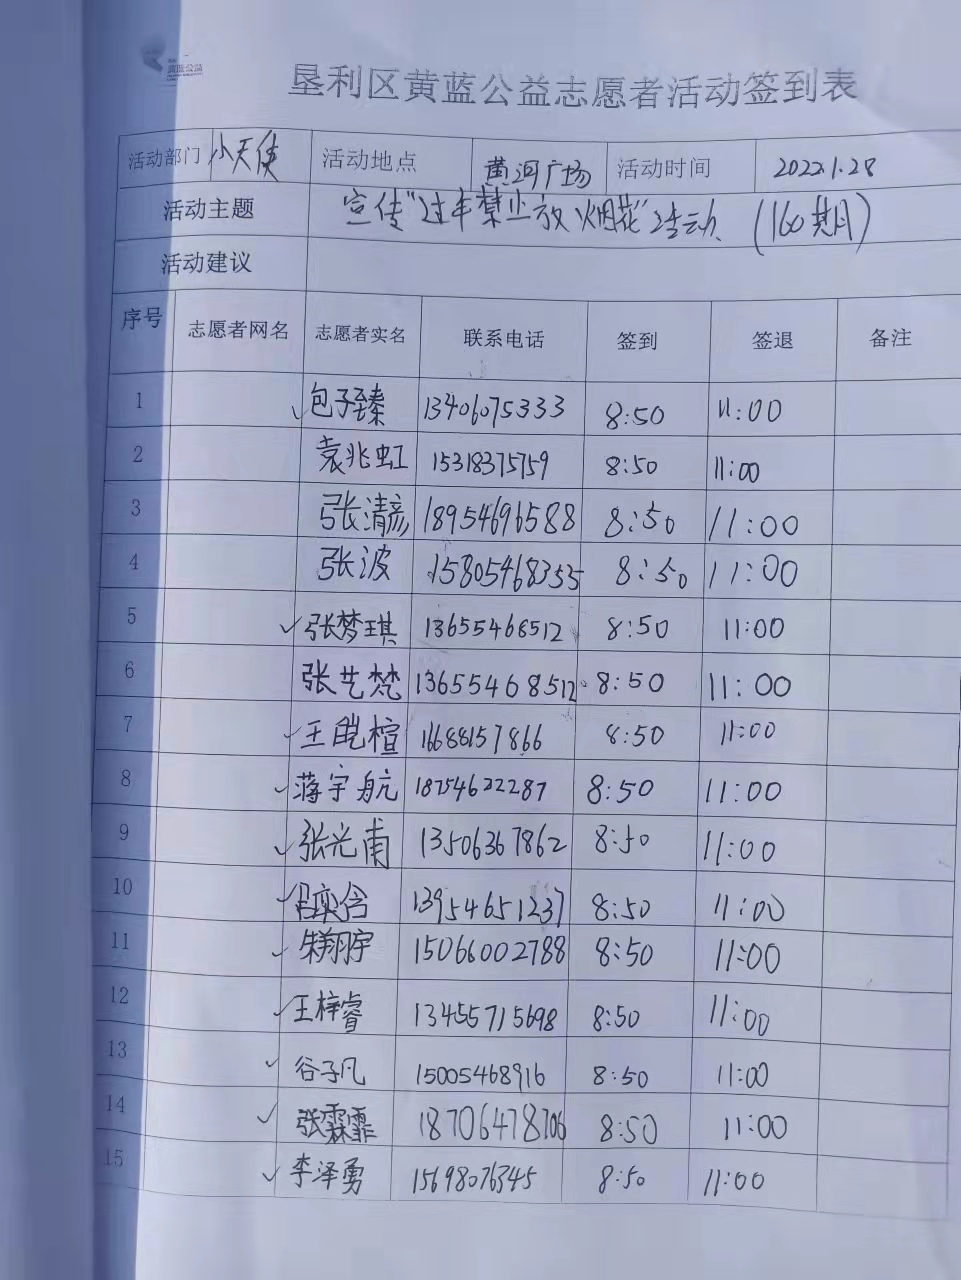 黄蓝公益
垦利区黄蓝公益志愿者活动签到表
活动部门 小天使 活动地点 黄河广场 活动时间 2022.1.28
活动主题 宣传"过年禁止放烟花"活动 (160期)
活动建议
序号 志愿者网名 志愿者实名 联系电话 签到 签退 备注
1 包子臻 13406075333 8:50 11:00
2 袁兆虹 15318375759 8:50 11:00
3 张清彦 18954696588 8:50 11:00
4 张波 15805468355 8:50 11:00
5 张梦琪 13655468512 8:50 11:00
6 张艺梵 13655468512 8:50 11:00
7 王 楦 16688157866 8:50 11:00
8 蒋宇航 18754622287 8:50 11:00
9 张光甫 13506367862 8:50 11:00
10 吕奕含 13954651237 8:50 11:00
11 朱翔宇 15066002788 8:50 11:00
12 王梓睿 13455715698 8:50 11:00
13 谷子凡 15005468916 8:50 11:00
14 张霖霏 18706478706 8:50 11:00
15 李泽勇 15698076345 8:50 11:00